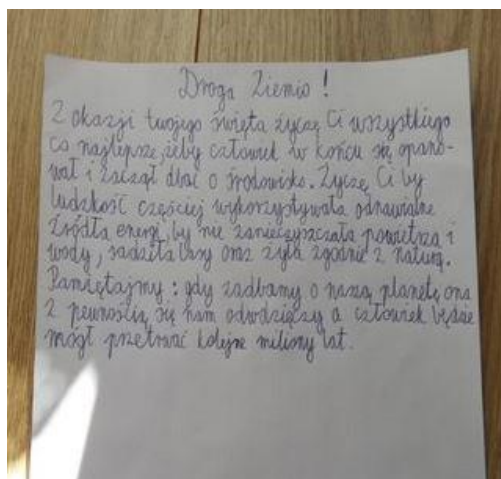 Droga Ziemio!
Z okazji twojego święta życzę Ci wszystkiego
co najlepsze, żeby człowiek w końcu się opano-
wał i zaczął dbać o środowisko. Życzę Ci by
ludzkość częściej wykorzystywała odnawialne
źródła energi, by nie zanieczyszczała powietrza i
wody, sadziła lasy oraz żyła zgodnie z naturą.
Pamiętajmy: gdy zadbamy o naszą planetę ona
z pewnością się nam odwdzięczy a człowiek będzie
mógł przetrwać kolejne miliony lat.